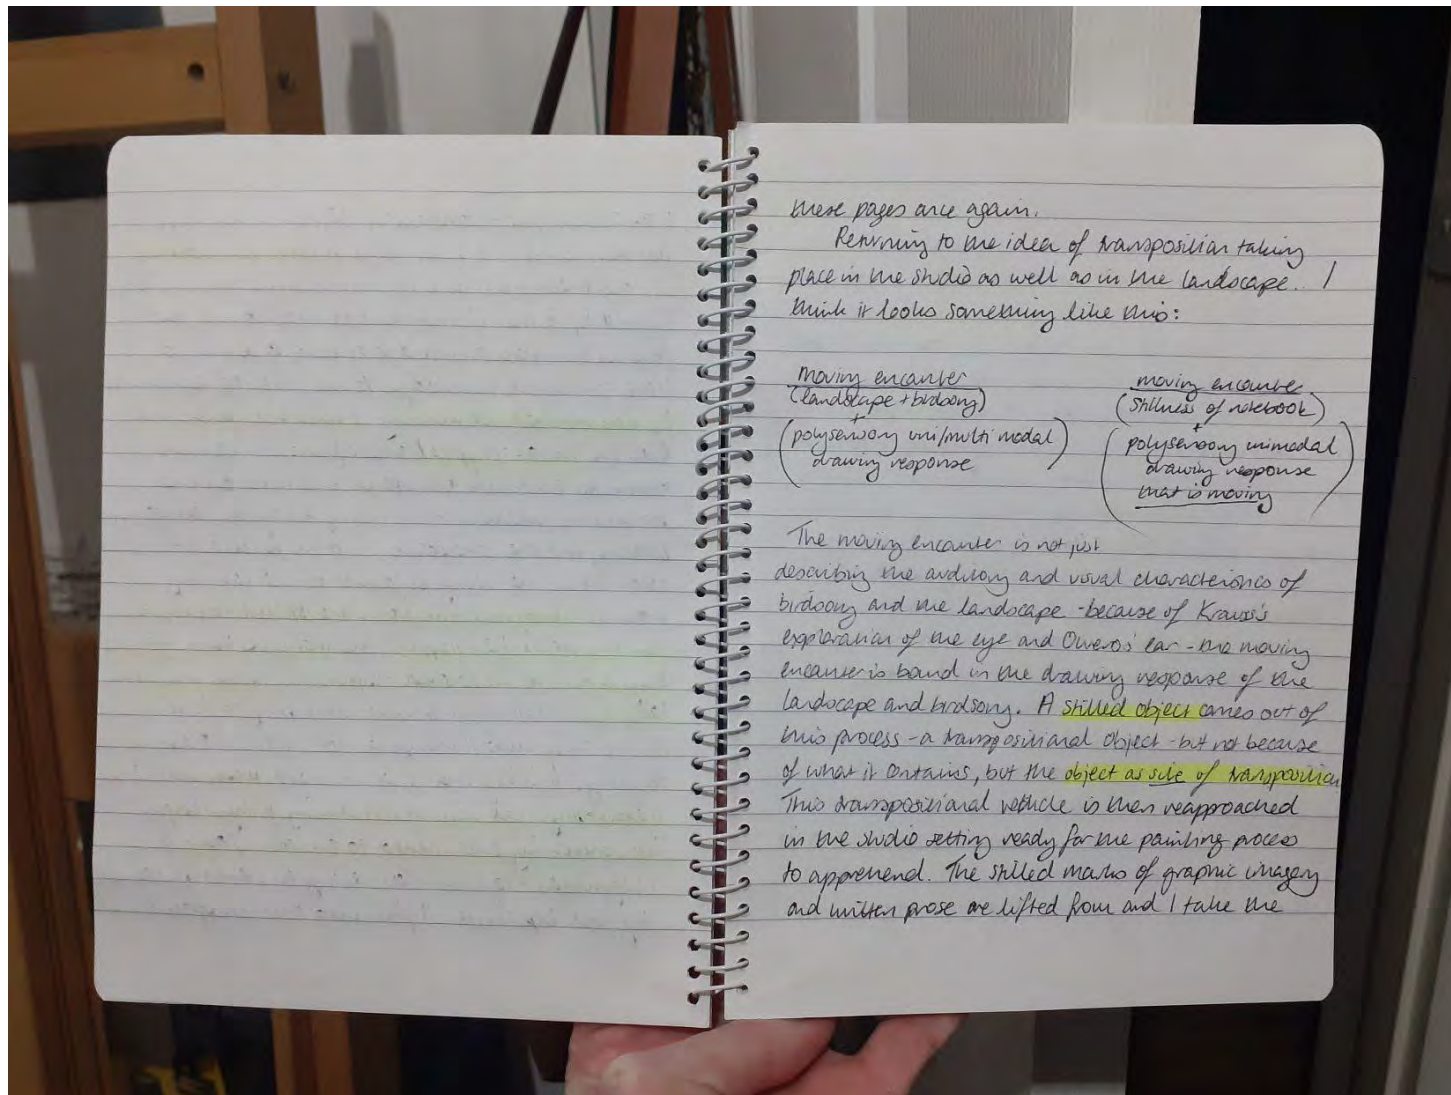 these pages once again.
Returning to the idea of transposition taking
place in the studio as well as in the landscape. I
think it looks something like this:
moving encounter
(landscape + birdsong)
+
(polysensory uni/multi modal
drawing response)
moving encounter
(stillness of notebook)
+
(polysensory unimodal
drawing response
that is moving)
The moving encounter is not just
describing the auditory and visual characteristics of
birdsong and the landscape - because of Krauss's
exploration of the eye and Oliveros' ear - the moving
encounter is bound in the drawing response of the
landscape and birdsong. A stilled object comes out of
this process - a transpositional object - but not because
of what it contains, but the object as site of transposition
This transpositional vehicle is then reapproached
in the studio setting ready for the painting process
to apprehend. The stilled marks of graphic imagery
and written prose are lifted from and I take the